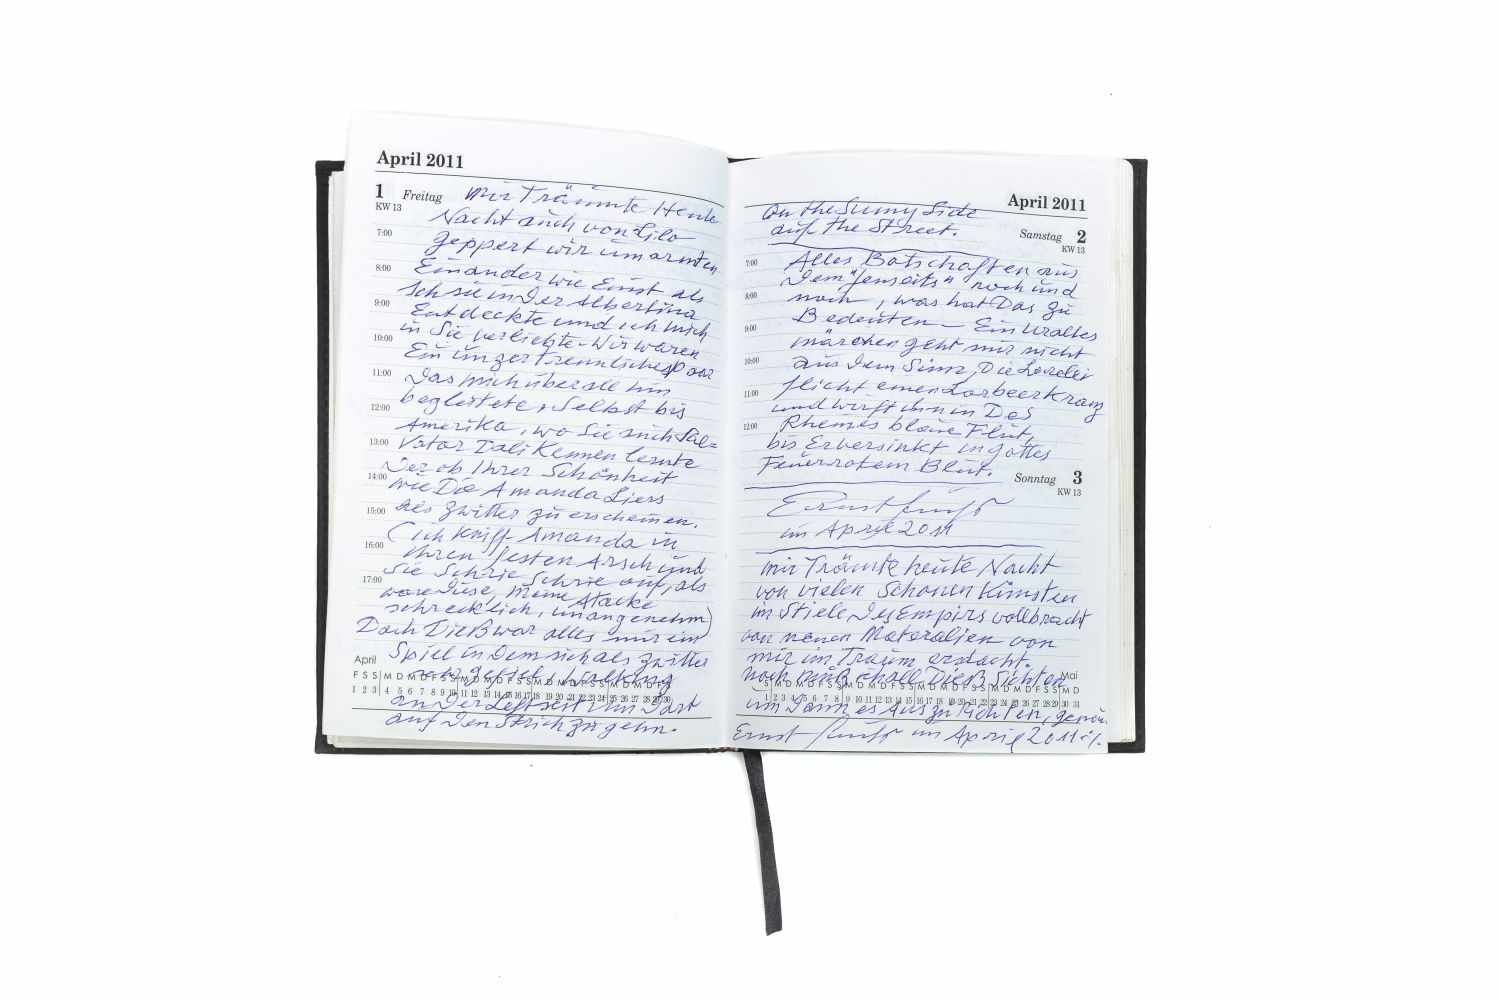 April 2011
1 Freitag
KW 13
Mir Träumte Heute
Nacht auch von Lilo
geppert wir umarmten
Einander wie Einst als
Ich sie in Der Albertina
Entdeckte und ich mich
in Sie verliebte. Wir waren
Ein unzertrennliches Paar
Das mich überall hin
begleitete, Selbst bis
Amerika, wo Sie auch Sal=
Vator Dali Kennen lernte
Der ob Ihrer Schönheit
wie Die Amanda Liers
als Zwitter zu erscheinen.
(ich Kniff Amanda in
Ihren festen Arsch und
Sie Schrie Schrie auf, als
wäre Diese, Meine Atacke
schrecklich, unangenehm)
Doch Dieß war alles nur ein
Spiel in Dem sich als Zwitter
Walking
an Der
auf Den Strich zu gehn.
7:00
8:00
9:00
10:00
11:00
12:00
13:00
14:00
15:00
16:00
17:00
April
F S S M D M D F S S M D M D F S S M D M D F S S M D M D F S
1 2 3 4 5 6 7 8 9 10 11 12 13 14 15 16 17 18 19 20 21 22 23 24 25 26 27 28 29 30
April 2011
on the Sunny Side
auf the Street.
Samstag 2
KW 13
Alles Botschaften aus
Dem "Jenseits" noch und
noch, was hat Das zu
Bedeuten – Ein Uraltes
märchen geht mir nicht
aus Dem Sinn, Die Lorelei
flicht einen Lorbeerkranz
und wirft ihn in Des
Rheines blaue Flut,
bis Er versinkt in gottes
Feuerrotem Blut.
7:00
8:00
9:00
10:00
11:00
12:00
Sonntag 3
KW 13
Ernst Fuchs
im April 2011
mir Träumte heute Nacht
von vielen Schönen Künsten
im Stiele Des Empirs vollbracht
von neuen Materalien von
mir im Traum erdacht.
noch muß ich all Dieß Sichten
um Dann es Aus zu Richten, genau
Ernst Fuchs im April 2011
Mai
S M D M D F S S M D M D F S S M D M D F S S M D M D F S S M D
1 2 3 4 5 6 7 8 9 10 11 12 13 14 15 16 17 18 19 20 21 22 23 24 25 26 27 28 29 30 31